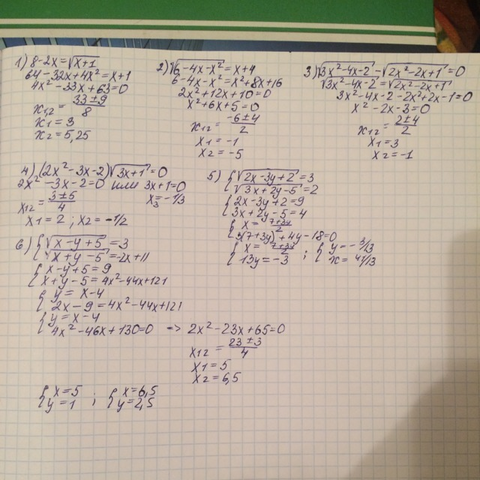 1) 8-2x=√x+1
64-32x+4x²=x+1
4x²-33x+63=0
x1,2 = 33±9/8
x1=3
x2=5,25
2) √6-4x-x²=x+4
6-4x-x²=x²+8x+16
2x²+12x+10=0
x²+6x+5=0
x1,2 = -6±4/2
x1=-1
x2=-5
3) √3x²-4x-2-√2x²-2x+1=0
√3x²-4x-2=√2x²-2x+1
3x²-4x-2-2x²+2x-1=0
x²-2x-3=0
x1,2 = 2±4/2
x1=3
x2=-1
4) (2x²-3x-2)√3x+1=0
2x²-3x-2=0 или 3x+1=0
x1,2 = 3±5/4 x3=-1/3
x1=2; x2=-1/2
5) {√2x-3y+2=3
{√3x+2y-5=2
{2x-3y+2=9
{3x+2y-5=4
{x=7+3y/2
{3(7+3y)+4y-18=0
{x=7+3y/2
{13y=-3 ; {y=-3/13
{x=41/13
6) {√x-y+5=3
{√x+y-5=-2x+11
{x-y+5=9
{x+y-5=4x²-44x+121
{y=x-4
{2x-9=4x²-44x+121
{y=x-4
{4x²-46x+130=0 => 2x²-23x+65=0
x1,2 = 23±3/4
x1=5
x2=6,5
{x=5
{y=1 ; {x=6,5
{y=2,5